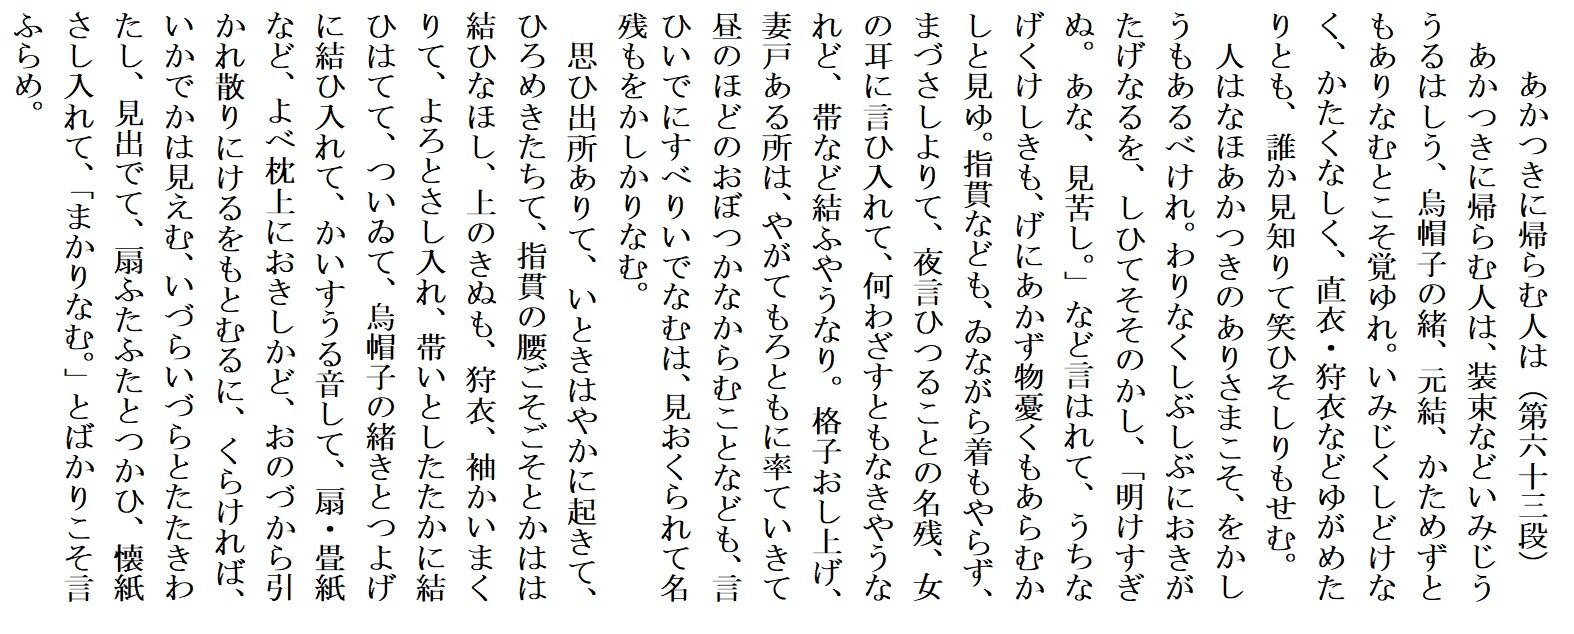 あかつきに帰らむ人は（第六十三段）
あかつきに帰らむ人は、装束などいみじう
うるはしう、烏帽子の緒、元結、かためずと
もありなむとこそ覚ゆれ。いみじくしどけな
く、かたくなしく、直衣・狩衣などゆがめた
りとも、誰か見知りて笑ひそしりもせむ。
人はなほあかつきのありさまこそ、をかし
うもあるべけれ。わりなくしぶしぶにおきが
たげなるを、しひてそそのかし、「明けすぎ
ぬ。あな、見苦し。」など言はれて、うちな
げくけしきも、げにあかず物憂くもあらむか
しと見ゆ。指貫なども、ゐながら着もやらず、
まづさしよりて、夜言ひつることの名残、女
の耳に言ひ入れて、何わざすともなきやうな
れど、帯など結ふやうなり。格子おし上げ、
妻戸ある所は、やがてもろともに率ていきて
昼のほどのおぼつかなからむことなども、言
ひいでにすべりいでなむは、見おくられて名
残もをかしかりなむ。
思ひ出所ありて、いときはやかに起きて、
ひろめきたちて、指貫の腰ごそごそとかはは
結ひなほし、上のきぬも、狩衣、袖かいまく
りて、よろとさし入れ、帯いとしたたかに結
ひはてて、ついゐて、烏帽子の緒きとつよげ
に結ひ入れて、かいすうる音して、扇・畳紙
など、よべ枕上におきしかど、おのづから引
かれ散りにけるをもとむるに、くらければ、
いかでかは見えむ、いづらいづらとたたきわ
たし、見出でて、扇ふたふたとつかひ、懐紙
さし入れて、「まかりなむ。」とばかりこそ言
ふらめ。